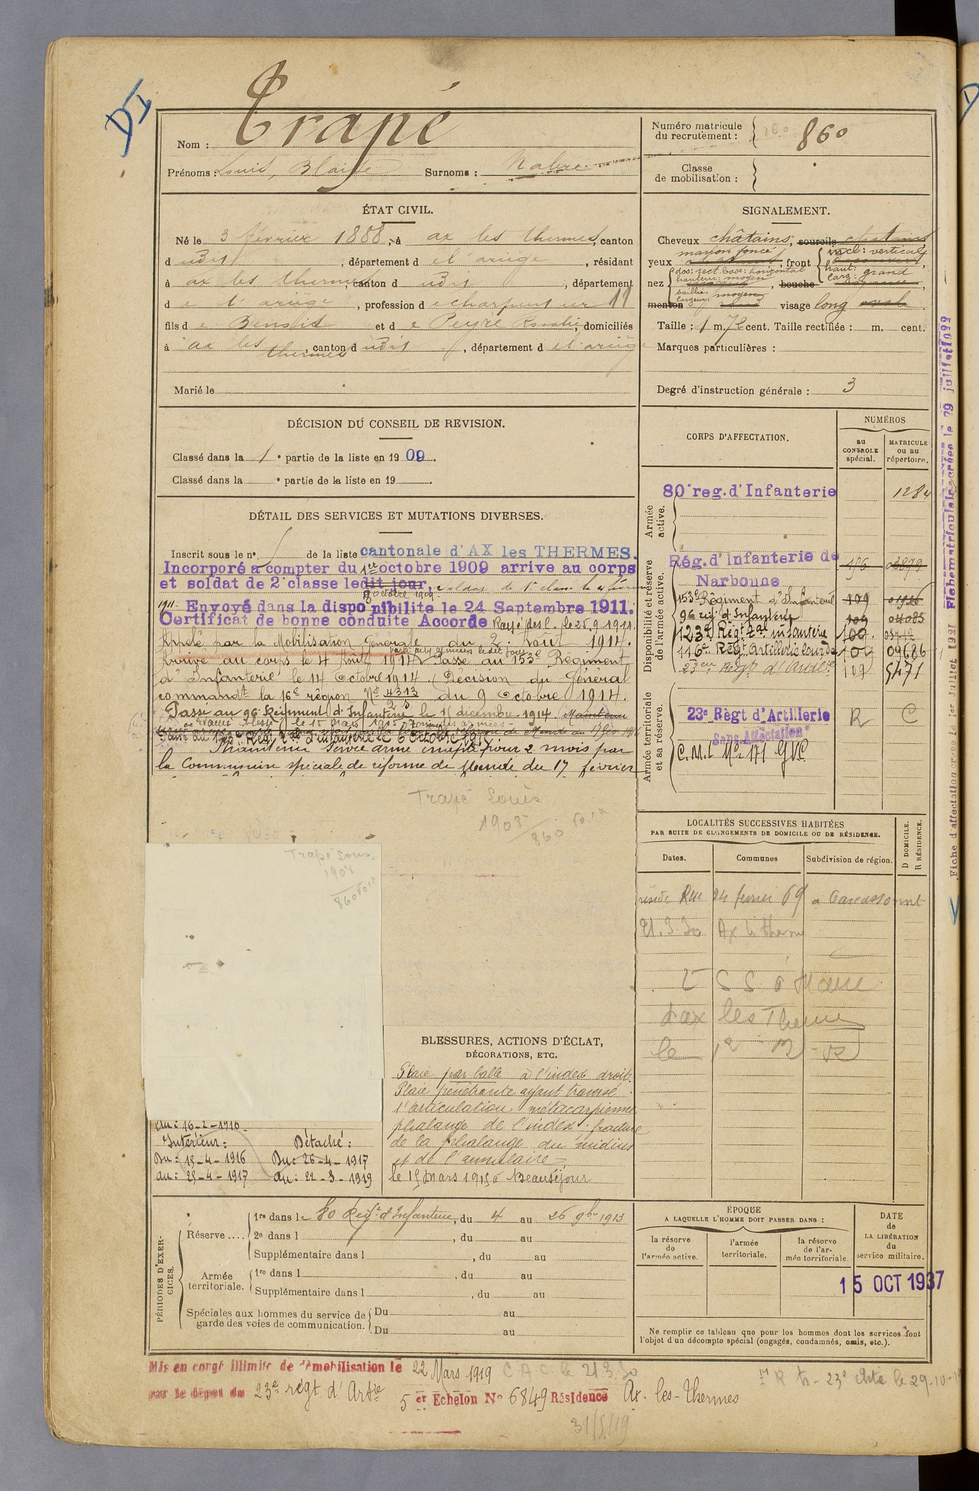 DI
Nom : Trapé
Prénoms : Louis, Blaise Surnoms :
Numéro matricule du recrutement : 860
Classe de mobilisation :
ÉTAT CIVIL.
Né le 3 février 1888, à ax les thermes, canton
d udit, département d e l'ariège, résidant
à ax les thermes, canton d udit, département
d e l'ariège, profession d e charpentier 11
fils d e Benoit et d e Peyre Rosalie, domiciliés
à ax les thermes, canton d udit, département d e l'ariège
Marié le
SIGNALEMENT.
Cheveux châtains, sourcils châtains
yeux marron foncé, front { incl: vertical
haut:
larg: grand
nez { dos: rect. base: horizontal
hauteur: moyen
saillie
largeur moyen, bouche moyenne,
menton visage long ovale.
Taille : 1 m. 72 cent. Taille rectifiée : m. cent.
Marques particulières :
Degré d'instruction générale : 3
DÉCISION DU CONSEIL DE REVISION.
Classé dans la 1e partie de la liste en 1909.
Classé dans la e partie de la liste en 19
DÉTAIL DES SERVICES ET MUTATIONS DIVERSES.
Inscrit sous le no de la liste cantonale d'AX les THERMES.
Incorporé a compter du 1er octobre 1909 arrive au corps
et soldat de 2e classe ledit jour,
8 octobre 1909
1911. Envoyé dans la disponibilité le 24 Septembre 1911.
Certificat de bonne conduite Accordé
Rappelé par la Mobilisation Générale du 2 août 1914.
Arrivé au corps le 4 Août 1914 Passé au 153e Régiment
d'Infanterie le 14 Octobre 1914 (Décision du Général
commandt la 16e région No 4313 du 9 Octobre 1914.
Passé au 96e Régiment d'Infanterie le 11 décembre 1914.
Maintenu Service armé inapte pour 2 mois par
la Commission spéciale de réforme de Mende du 17 février
Trapé Louis
1908
860
Trapé Louis
1908
860
au: 16-2-1916
Intérieur: Détaché:
Du: 15-4-1916 Du: 26-4-1917
au: 25-4-1917 au: 22-3-1919
BLESSURES, ACTIONS D'ÉCLAT,
DÉCORATIONS, ETC.
Plaie par balle à l'index droit.
Plaie pénétrante ayant traversé
l'articulation métacarpienne
phalange de l'index: fracture
de la phalange du médius
et de l'annulaire
le 15 mars 1915 à Beauséjour
CORPS D'AFFECTATION.
NUMÉROS
au CONTROLE spécial.
MATRICULE ou au répertoire.
Armée active.
80e reg. d'Infanterie 1284
Disponibilité et réserve de l'armée active.
Rég. d'Infanterie de Narbonne
153e Régiment d'Infanterie 109
96e régt d'Infanterie 109
123e Régt d'infanterie 100
116e Régt Artillerie lourde 104 09686
23ème Régt d'Artil. 119 5471
Armée territoriale et sa réserve.
23e Règt d'Artillerie R C
Sans Affectation
C.M.I No 171 GVC
LOCALITÉS SUCCESSIVES HABITÉES
PAR SUITE DE CHANGEMENTS DE DOMICILE OU DE RÉSIDENCE.
Dates. Communes Subdivision de région. D DOMICILE. R RÉSIDENCE.
réside Rue 24 fevrier 69 a Carcassonne
21.3.30 Ax les thermes
d'ax les Thermes
PÉRIODES D'EXERCICES.
Réserve .... 1re dans le 80 Régt d'Infanterie, du 4 au 26 9bre 1913
2e dans l , du au
Supplémentaire dans l , du au
Armée territoriale. 1re dans l , du au
Supplémentaire dans l , du au
Spéciales aux hommes du service de garde des voies de communication. Du au
Du au
ÉPOQUE
A LAQUELLE L'HOMME DOIT PASSER DANS :
la réserve de l'armée active. l'armée territoriale. la réserve de l'armée territoriale
DATE de LA LIBÉRATION du service militaire.
15 OCT 1937
Ne remplir ce tableau que pour les hommes dont les services font
l'objet d'un décompte spécial (engagés, condamnés, omis, etc.).
Mis en congé illimité de démobilisation le 22 Mars 1919 C A C le 21.3.30
par le dépôt du 23e régt d'Artie 5 er Echelon No 6849 Résidence Ax-les-Thermes
R tr - 23e Artie le 29-10-
31/5/19
Fiche d'affectation créée le 1er Juillet 1927 Fiche matriculaire créée le 29 juillet 1929